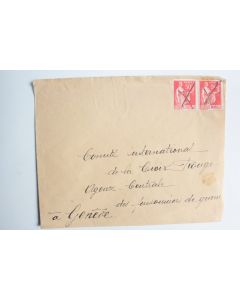 Comité international
de la Croix Rouge
Agence Centrale
des prisonniers de guerre
à Genève